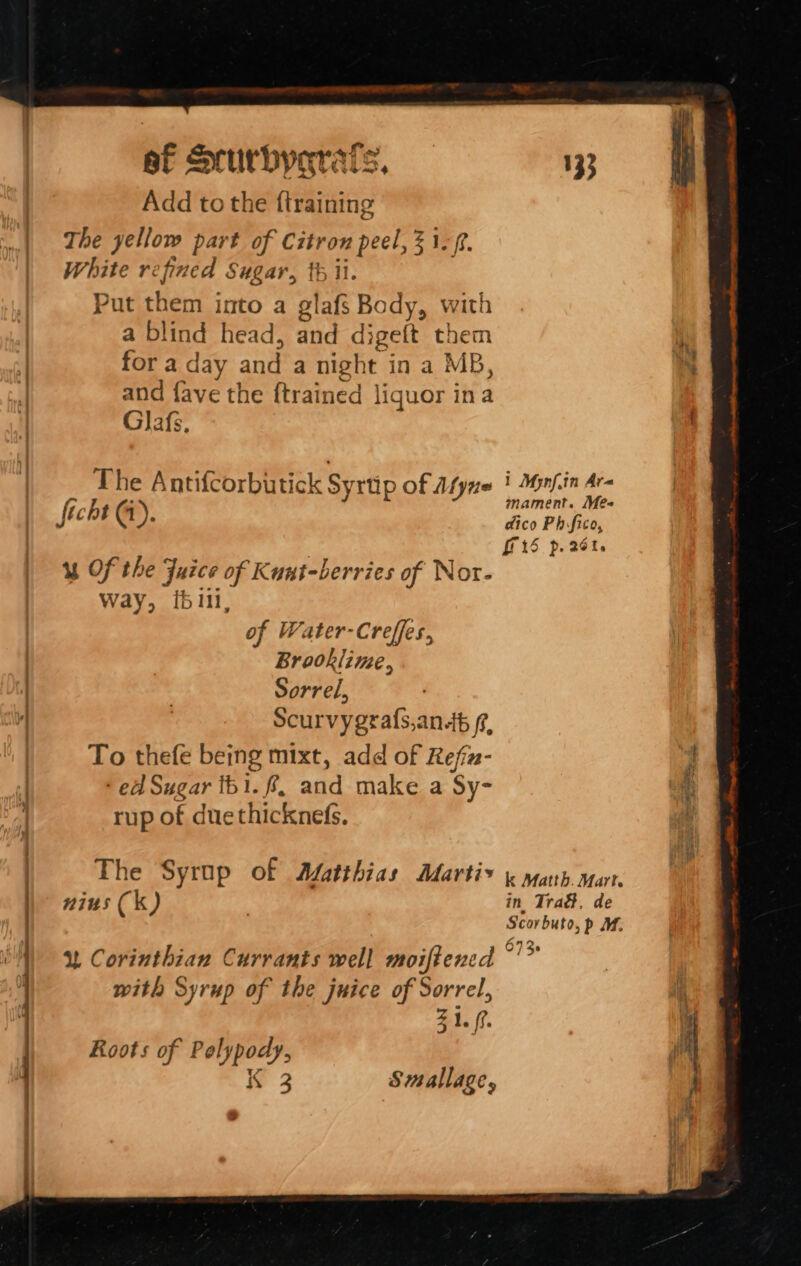 of Scurbygraſs. 133
Add to the ſtraining
The yellow part of Citron peel, ℥ i. ß.
White refined Sugar, ℔ ii.
Put them into a glaſs Body, with
a blind head, and digeſt them
for a day and a night in a MB,
and ſave the ſtrained liquor in a
Glaſs.
The Antiſcorbutick Syrup of Myn-
ſicht (i).
i Mynſ. in Ar-
mament. Me-
dico Phyſico,
ſſ 16 p. 261.
℞ Of the Juice of Knut-berries of Nor-
way, ℔ iii,
of Water-Creſſes,
Brooklime,
Sorrel,
Scurvygraſs, an. ℔ ß,
To theſe being mixt, add of Refin-
ed Sugar ℔ i. ß, and make a Sy-
rup of due thickneſs.
The Syrup of Matthias Marti-
nius (k)
k Matth. Mart.
in Tract. de
Scorbuto, p M.
673.
℞ Corinthian Currants well moiſtened
with Syrup of the juice of Sorrel,
℥ i. ß.
Roots of Polypody,
K 3 Smallage,